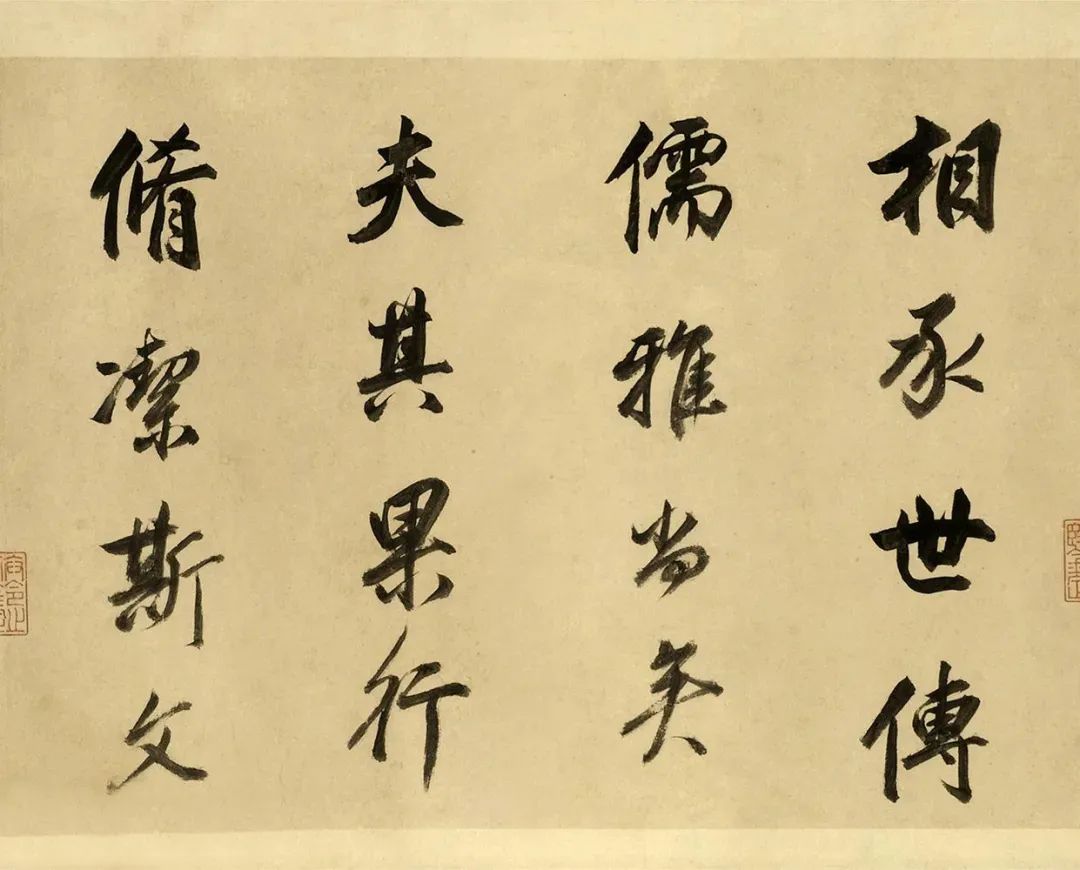 相承世傳
儒雅尚矣
夫其果行
脩潔斯文